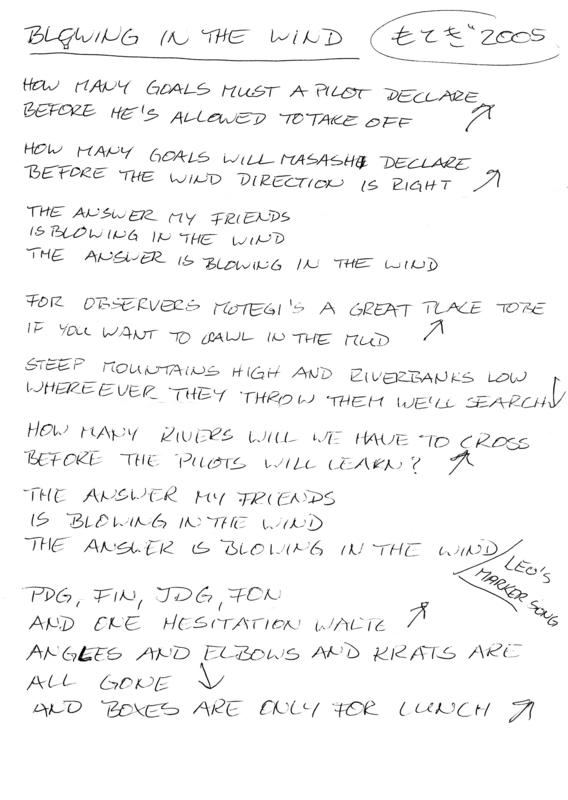 BLOWING IN THE WIND
もてぎ 2005
HOW MANY GOALS MUST A PILOT DECLARE
BEFORE HE'S ALLOWED TO TAKE OFF
HOW MANY GOALS WILL MASASHI DECLARE
BEFORE THE WIND DIRECTION IS RIGHT
THE ANSWER MY FRIENDS
IS BLOWING IN THE WIND
THE ANSWER IS BLOWING IN THE WIND
FOR OBSERVERS MOTEGI'S A GREAT PLACE TO BE
IF YOU WANT TO CRAWL IN THE MUD
STEEP MOUNTAINS HIGH AND RIVERBANKS LOW
WHEREEVER THEY THROW THEM WE'LL SEARCH
HOW MANY RIVERS WILL WE HAVE TO CROSS
BEFORE THE PILOTS WILL LEARN?
THE ANSWER MY FRIENDS
IS BLOWING IN THE WIND
THE ANSWER IS BLOWING IN THE WIND
LEO'S
MARKER SONG
PDG, FIN, JDG, FON
AND ONE HESITATION WALTZ
ANGLES AND ELBOWS AND KRATS ARE
ALL GONE
AND BOXES ARE ONLY FOR LUNCH